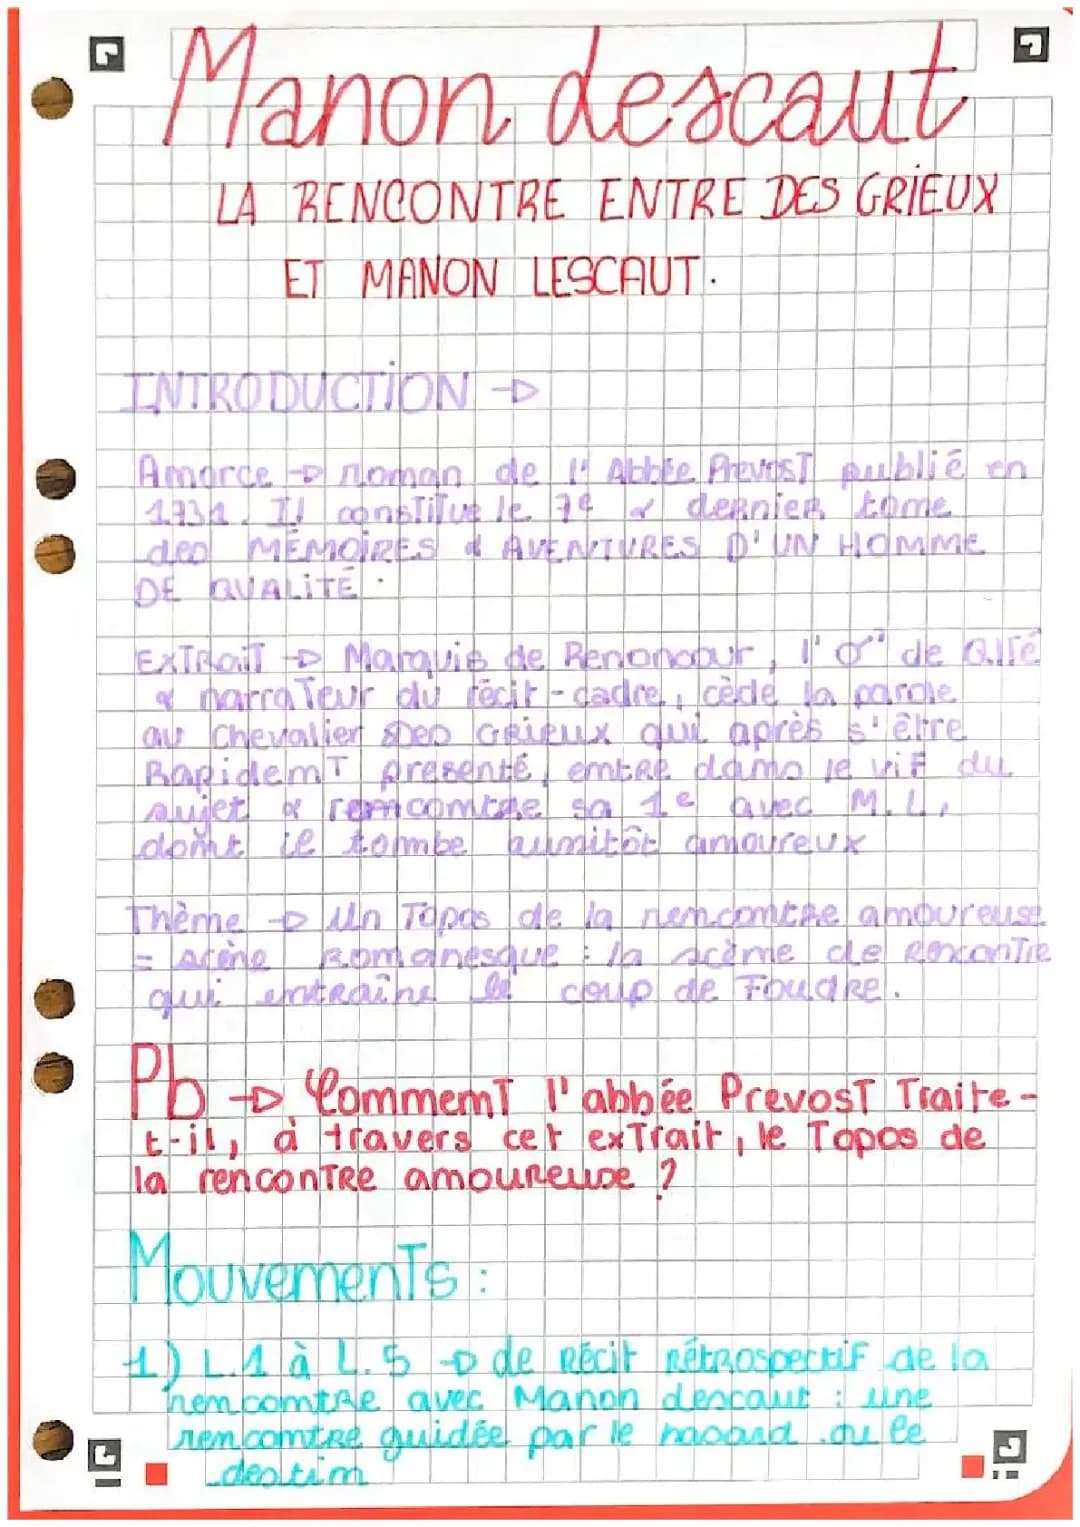 Manon descaut
LA RENCONTRE ENTRE DES GRIEUX
ET MANON LESCAUT.
INTRODUCTION →
Amorce → roman de l'Abbée Prevost publié en
1731. Il constitue le 7e & dernier tome
des MÉMOIRES & AVENTURES D'UN HOMME
DE QUALITÉ.
EXTRAIT → Marquis de Renoncour, l'♂ de Qlté
& narrateur du récit-cadre, cède la parole
au Chevalier Des Grieux qui après s'être
Rapidemt presenté, entre dans le vif du
sujet & rencontre sa 1e avec M.L,
dont il tombe aussitôt amoureux
Thème → Un Topos de la rencontre amoureuse
= scène Romanesque : la scème de Rencontre
qui entraîne le coup de Foudre.
Pb → Comment l'abbée Prevost Traite-
t-il, à travers cet exTrait, le Topos de
la rencontre amoureuse ?
Mouvements :
1) L.1 à L.5 → de Récit Rétrospectif de la
rencontre avec Manon descaut : une
rencontre guidée par le hasard ou le
destin